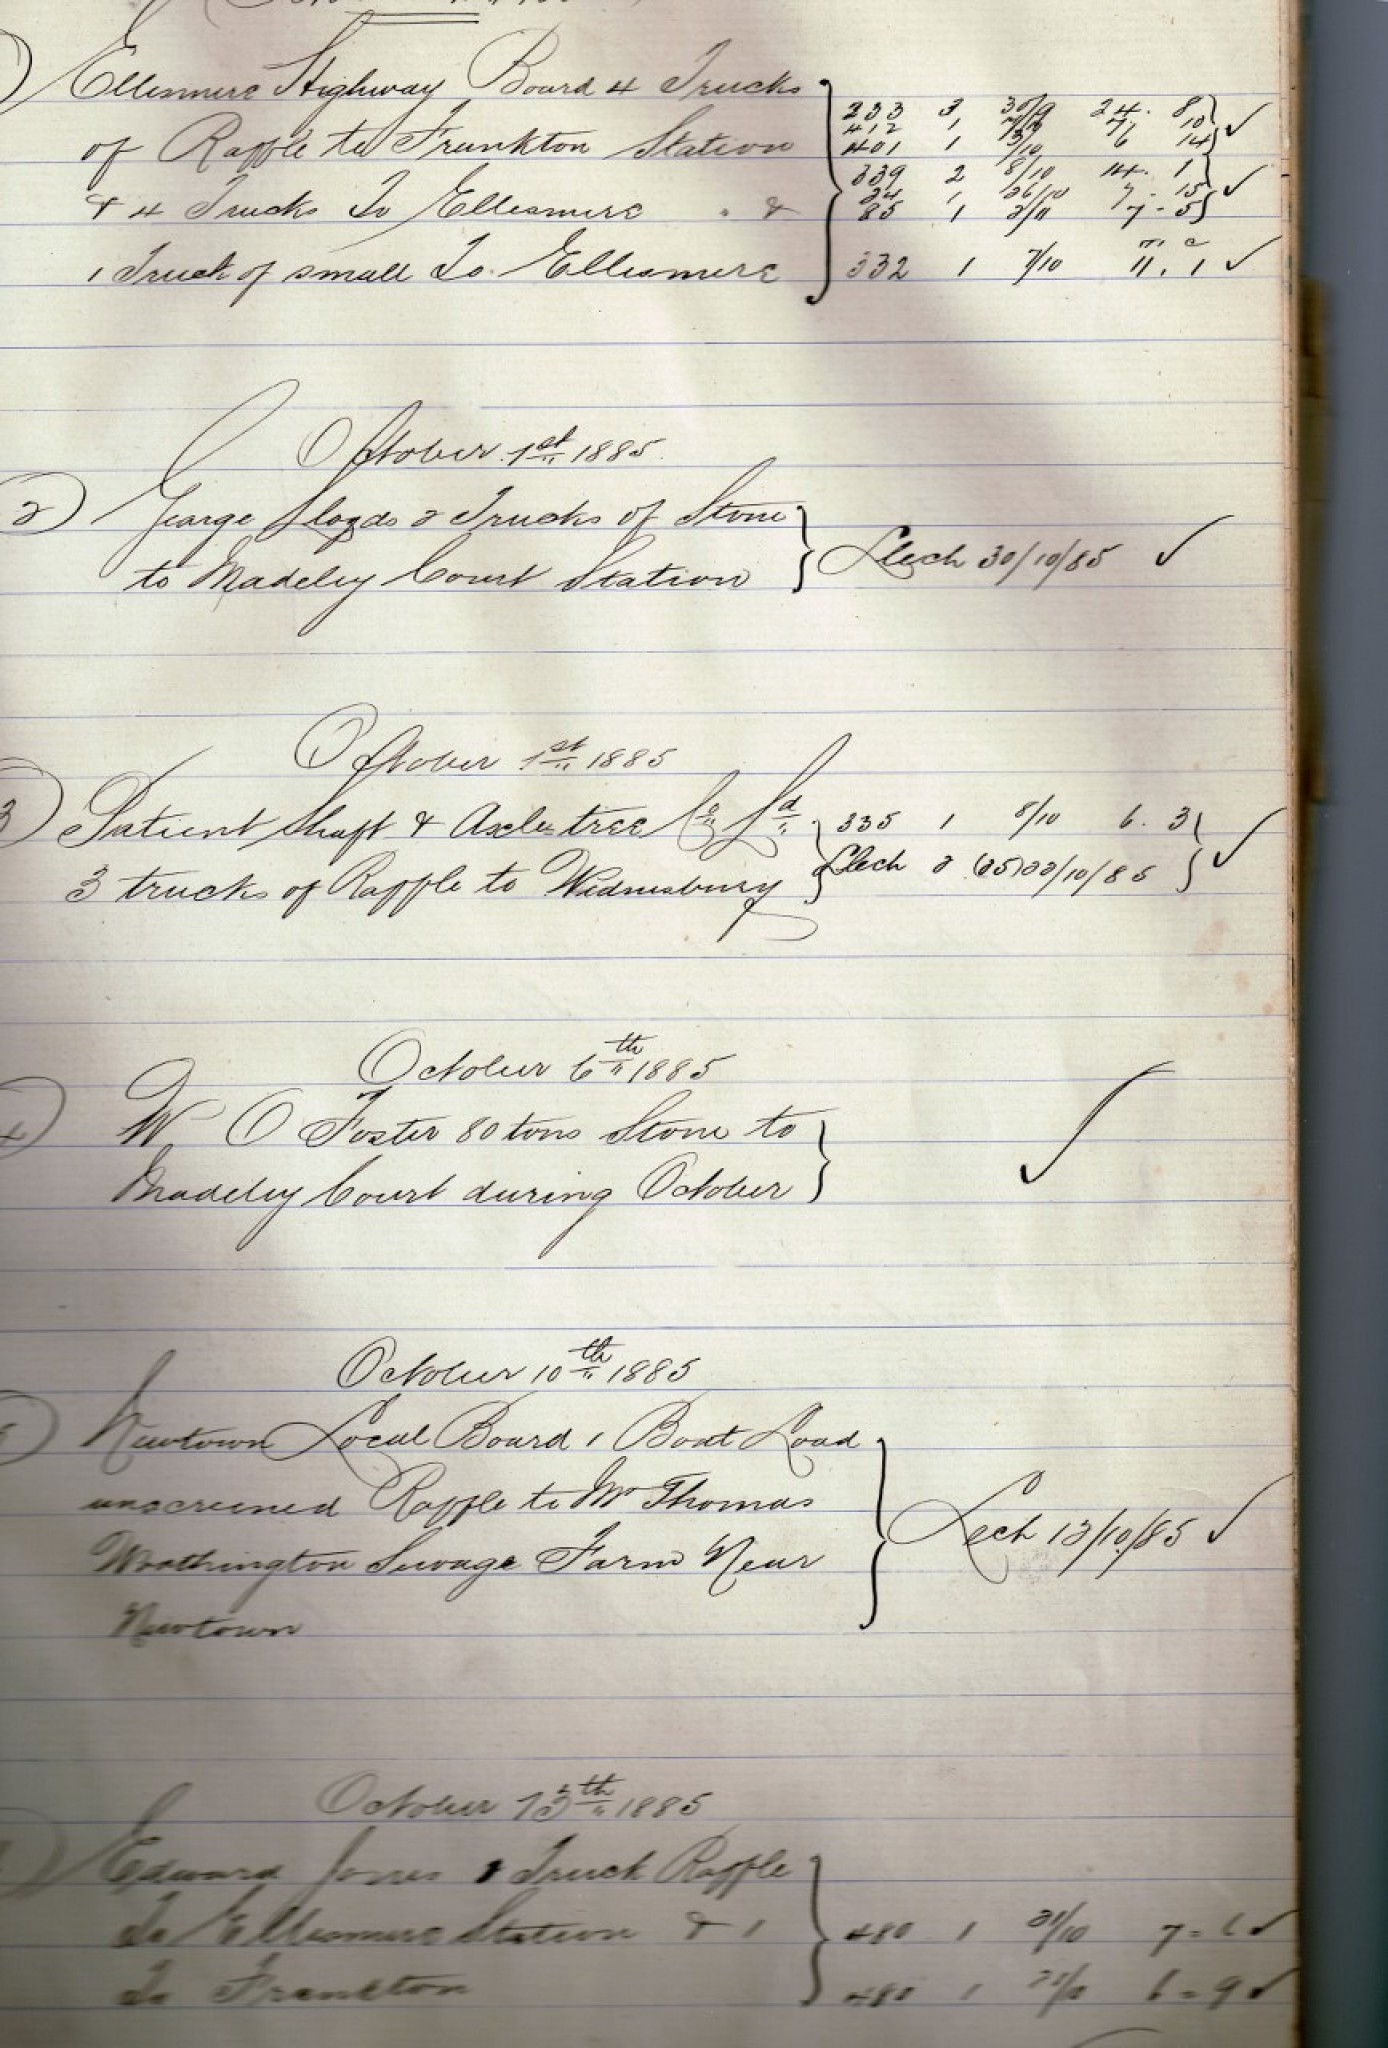 Ellesmere Highway Board 4 Trucks
of Raffle to Frankton Station
& 4 Trucks To Ellesmere &
1 Truck of small To Ellesmere
333 3 30/9 24. 8
412 1 7 10
401 1 6 14
339 2 8/10 14. 1
24 1 26/10 7 - 15
85 1 2/11 7 - 5
T. C
332 1 7/10 11. 1
October 1st 1885
2) George Lloyds 2 Trucks of Stone
to Madeley Court Station
Llech 30/10/85
October 1st 1885
3) Patient Shaft & Axle-tree Co Ld
3 trucks of Raffle to Wednesbury
335 1 8/10 6. 3
Llech 2 (25)22/10/85
October 6th 1885
W O Foster 80 tons Stone to
Madeley Court during October
October 10th 1885
Newtown Local Board 1 Boat Load
unscreened Raffle to Mr Thomas
Worthington Sewage Farm Near
Newtown
Lech 13/10/85
October 13th 1885
Edward Jones 1 Truck Raffle
To Ellesmere Station & 1
To Frankton
480 1 21/10 7 = 6
480 1 6 = 9